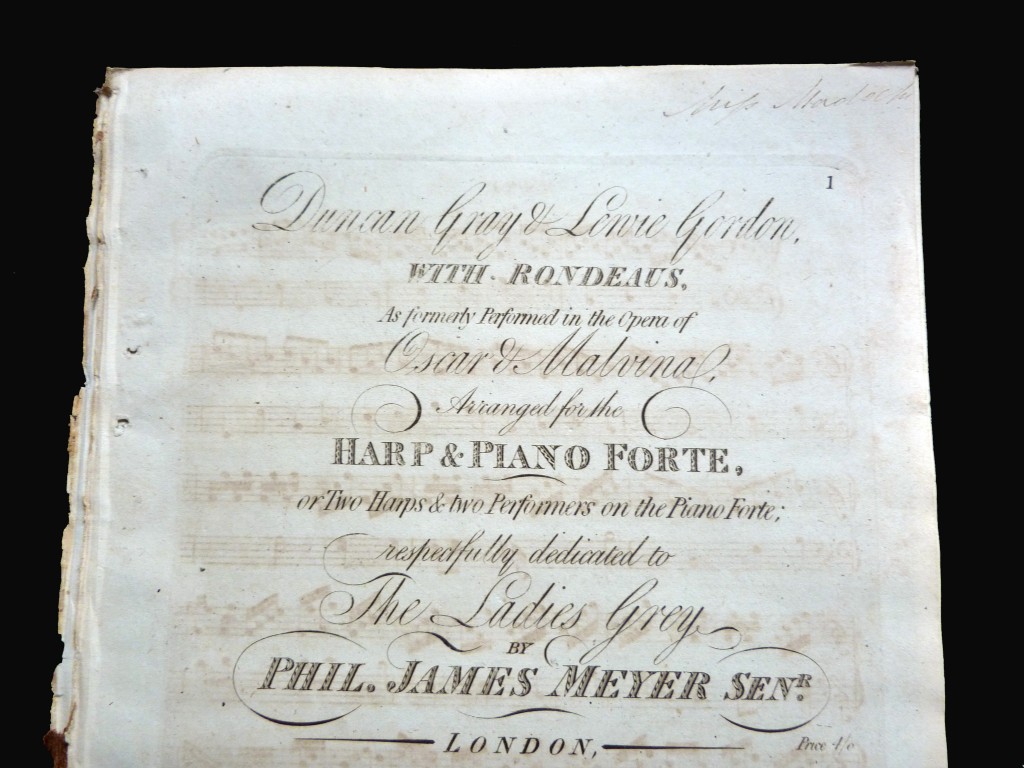 Miss
1
Duncan Gray & Lewie Gordon,
WITH RONDEAUS,
As formerly Performed in the Opera of
Oscar & Malvina,
Arranged for the
HARP & PIANO FORTE,
or Two Harps & two Performers on the Piano Forte;
respectfully dedicated to
The Ladies Grey
BY
PHIL. JAMES MEYER SENR.
LONDON,
Price 4/0